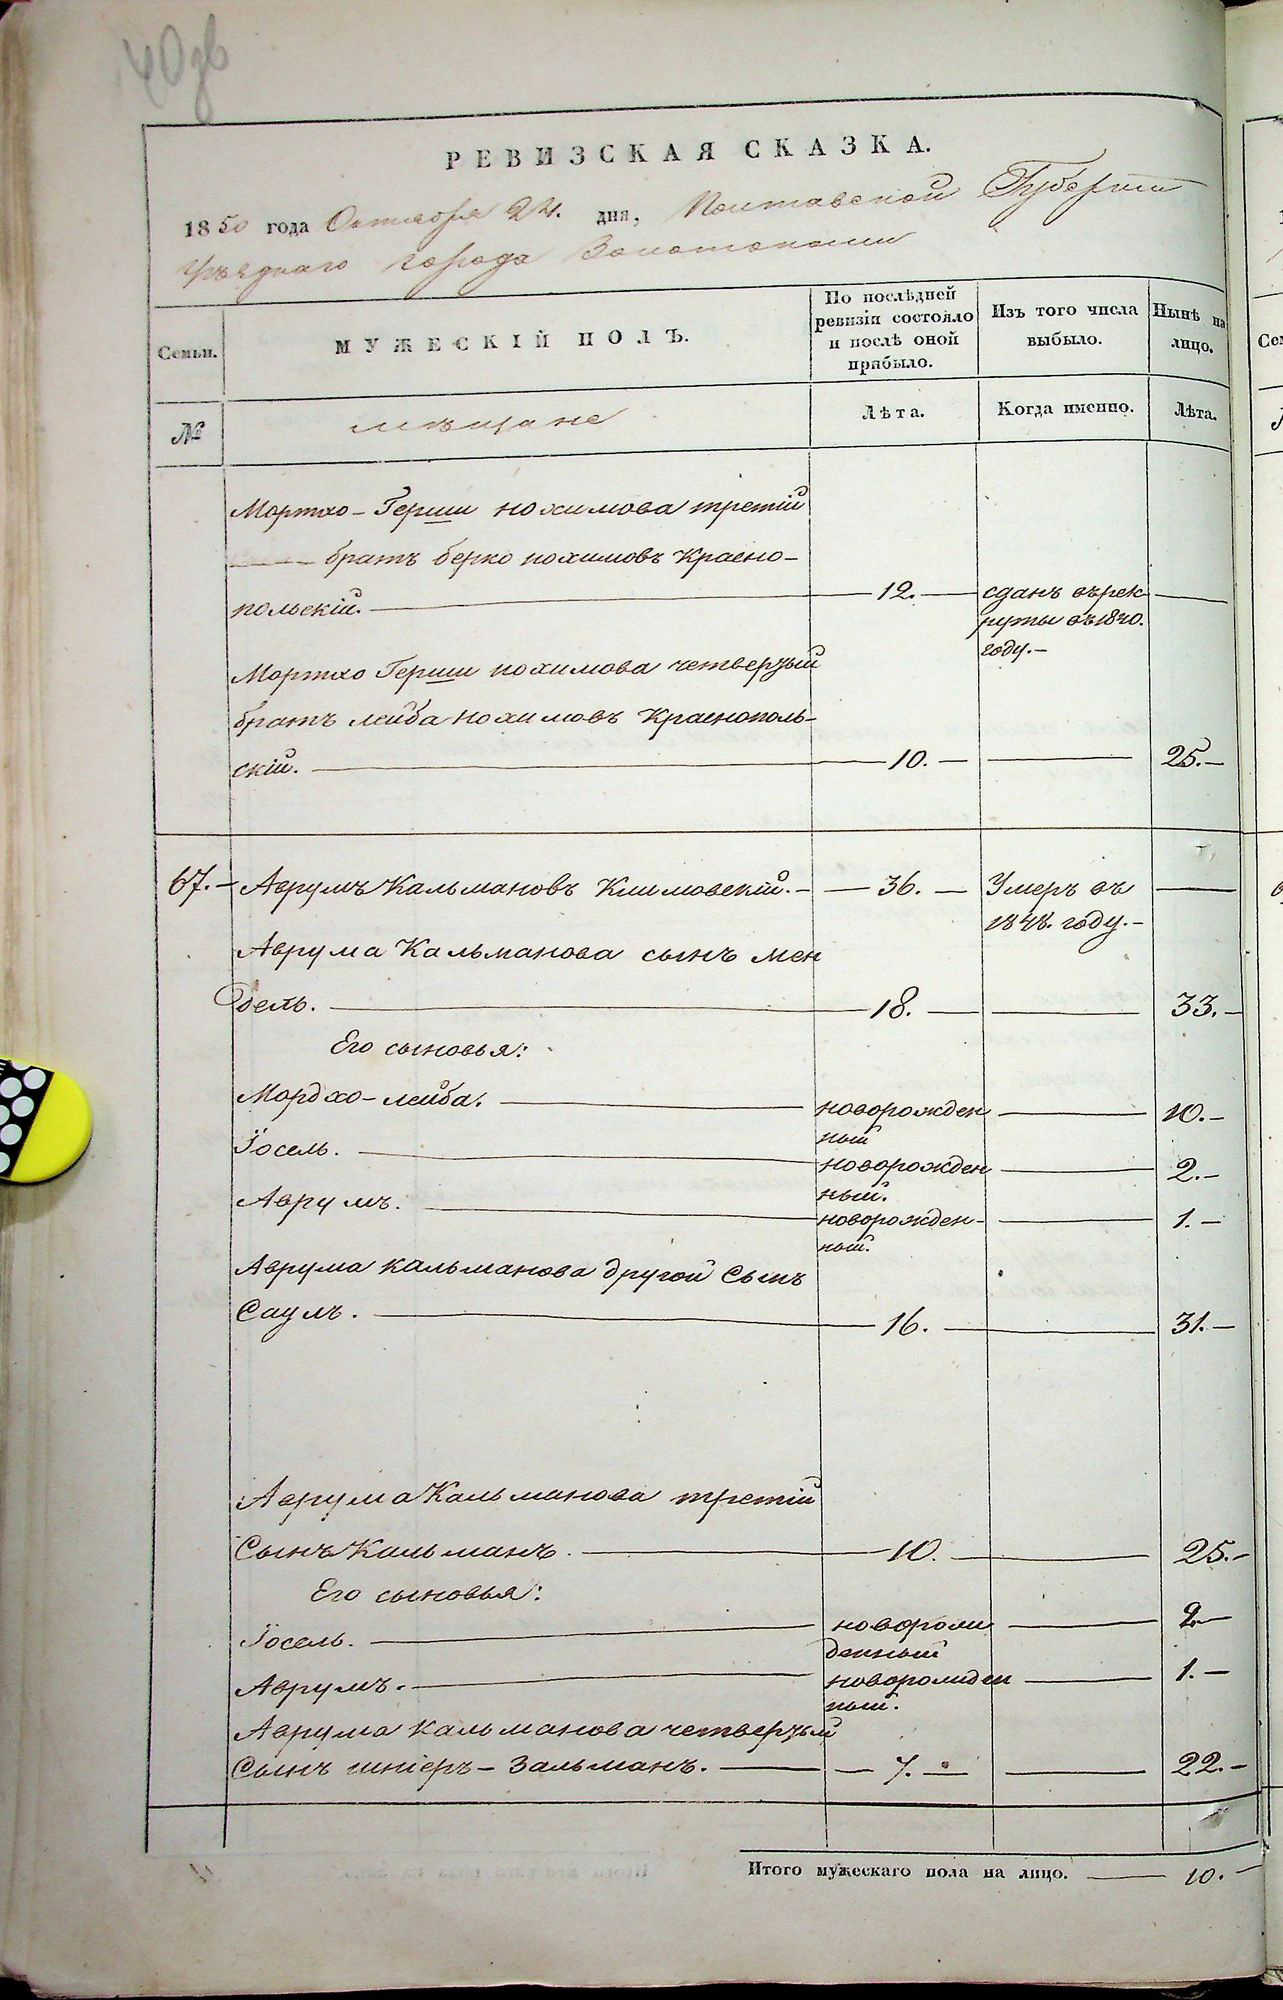 40 зв
РЕВИЗСКАЯ СКАЗКА.
1850 года Октября 24. дня, Полтавской Губернии
уѣзднаго города Золотоноши
Семьи. МУЖЕСКІЙ ПОЛЪ. По послѣдней ревизіи состояло и послѣ оной прибыло. Изъ того числа выбыло. Нынѣ на лицо.
№ мѣщане Лѣта. Когда именно. Лѣта.
Мортхо-Герши Нохимова третій
братъ Берко Нохимовъ Красно-
польскій. 12. сданъ въ рек
руты въ 1840.
году.-
Мортхо Герши Нохимова четвертый
братъ Лейба Нохимовъ Краснополь-
скій. 10.- 25.-
67.- Аврумъ Кальмановъ Климовскій.- 36. Умеръ въ
1848. году.-
Аврума Кальманова сынъ Мен
дель. 18. 33.-
Его сыновья:
Мордхо-Лейба. новорожден
ный 10.-
Іосель. новорожден
ный. 2.-
Аврумъ. новорожден-
ный. 1.-
Аврума Кальманова другой Сынъ
Саулъ. 16. 31.-
Аврума Кальманова третій
Сынъ Кальманъ. 10. 25.-
Его сыновья:
Іосель. новорож
денный 2
Аврумъ. новорожден
ный. 1.-
Аврума Кальманова четвертый
Сынъ Шніеръ-Зальманъ. 7. 22.-
Итого мужескаго пола на лицо. 10.-